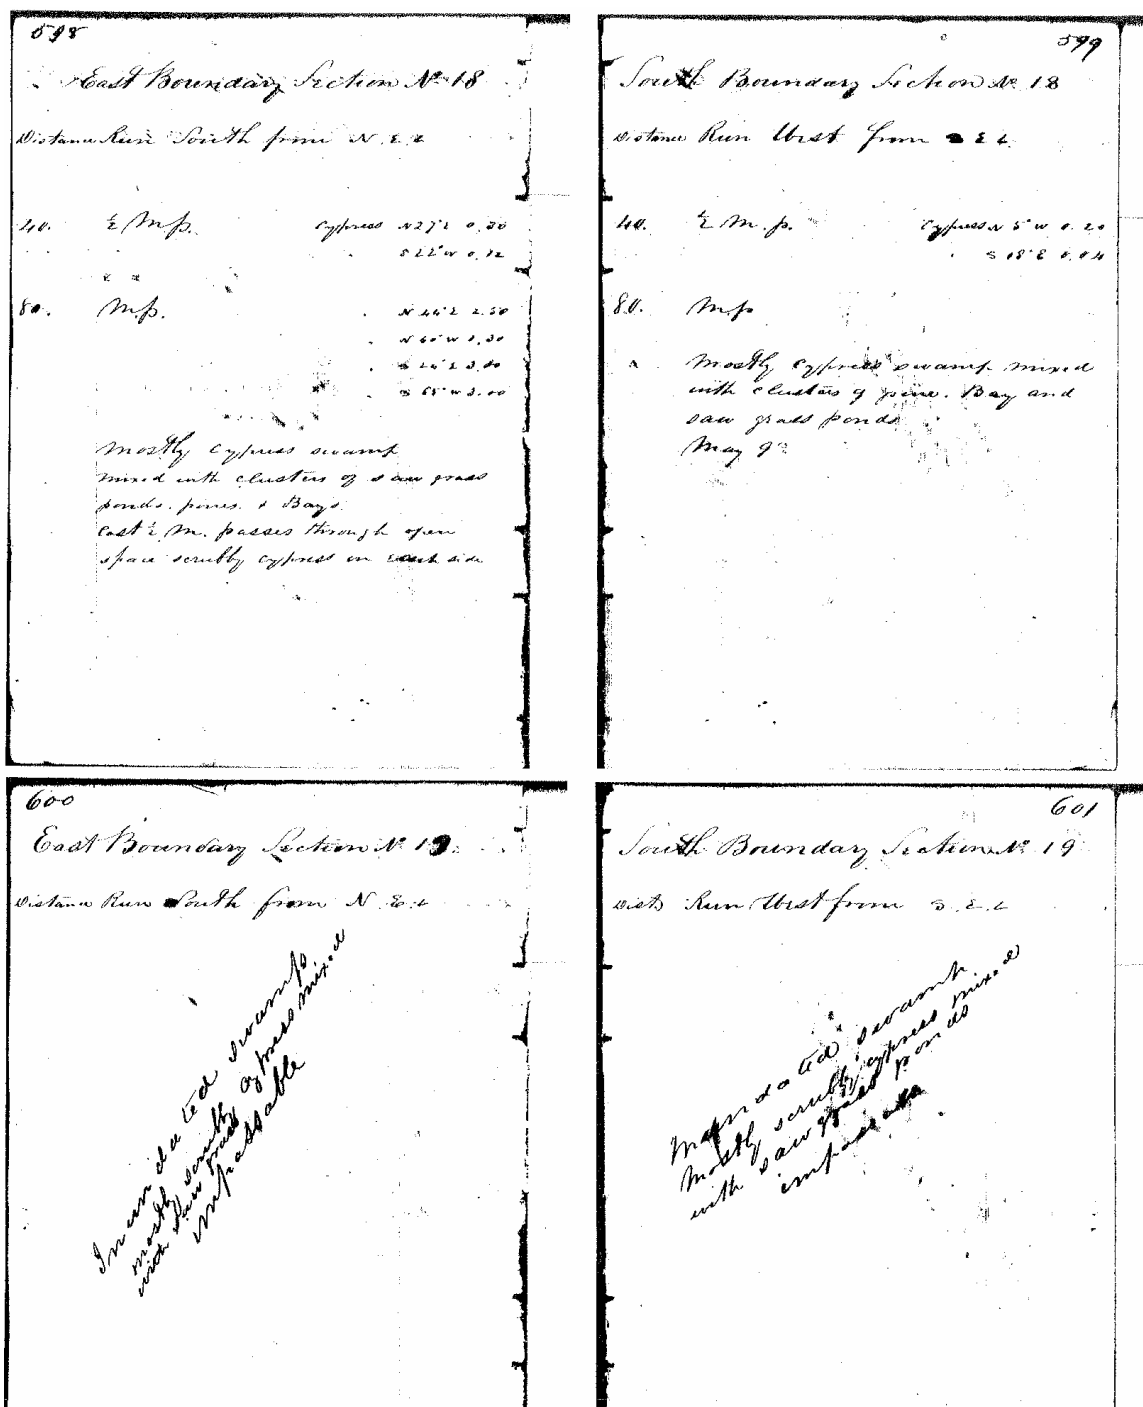 598
East Boundary Section No 18
Distance Run South from N. E. C
40. ½ M.p. Cypress N 27° E 0.80
S 22° W 0.12
80. M.p. N 44° E 2.50
N 60° W 3.30
E 3.00
S 65° W 3.00
Mostly Cypress swamp
mixed with clusters of saw grass
ponds. pines. & Bays.
East ½ M. passes through open
space scrubby cypress on each side
599
South Boundary Section No 18
Distance Run West from S E C.
40. ½ M.p. Cypress N 5° W 0.20
S 18° E 0.04
80. M.p
Mostly cypress swamp mixed
with clusters of pine. Bay and
saw grass ponds
May 9
600
East Boundary Section No 19
Distance Run South from N. E. C
Inundated swamp
mostly scrubby cypress mixed
with saw grass
impassable
601
South Boundary Section No 19
Dist Run West from S. E. C
Inundated swamp
Mostly scrubby cypress mixed
with saw grass ponds